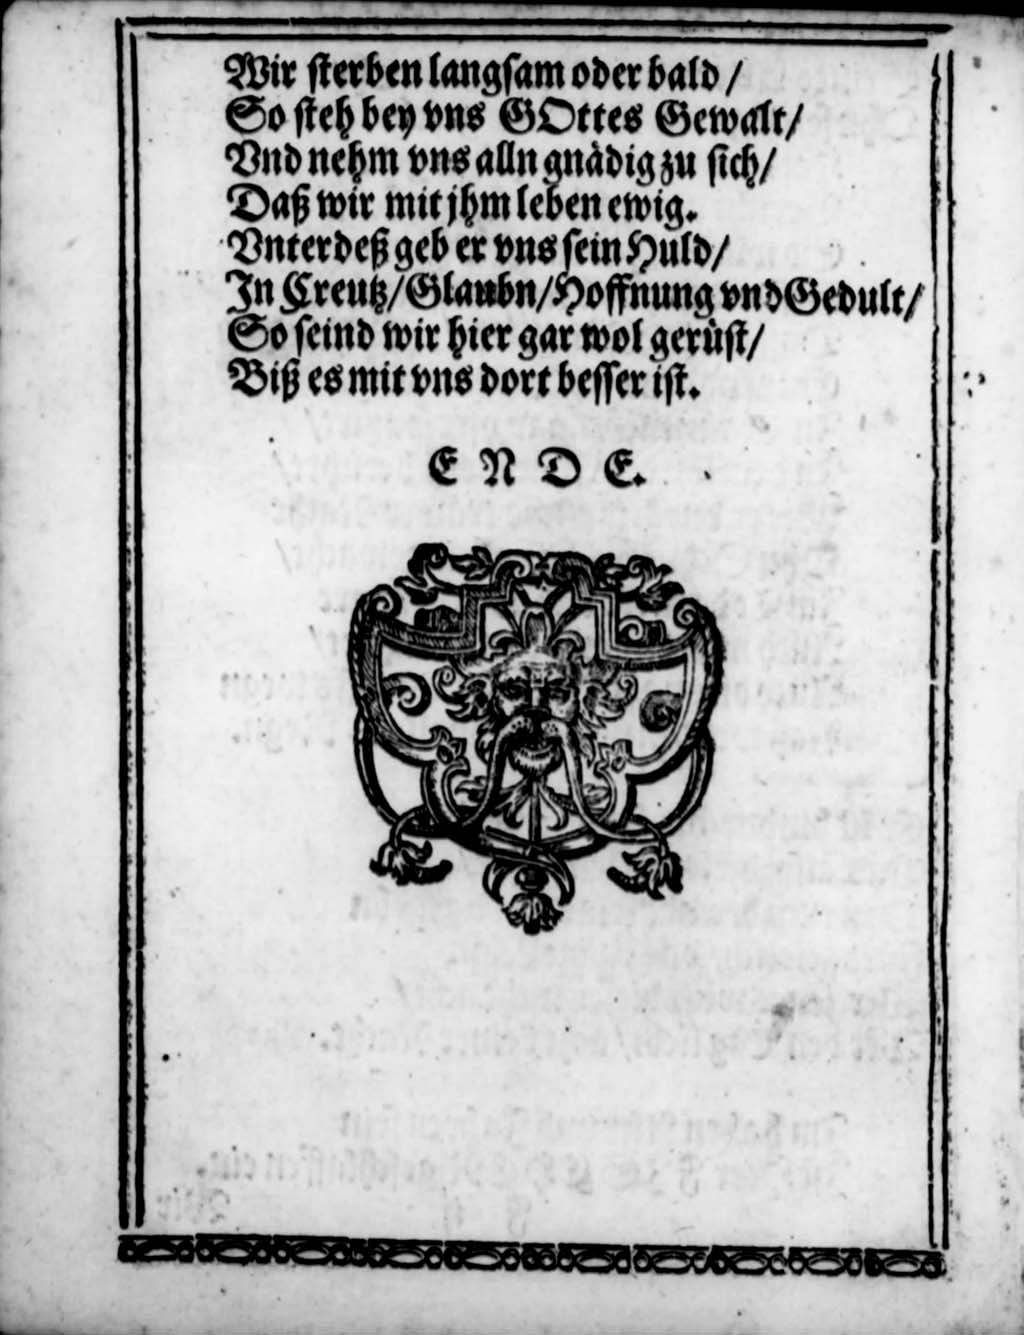 Wir sterben langsam oder bald /
So steh bey vns GOttes Gewalt/
Vnd nehm vns alln gnådig zu sich/
Daß wir mit jhm leben ewig.
Vnterdeß geb er vns sein Huld/
In Creutz/Glaubn/Hoffnung vnd Gedult/
So seind wir hier gar wol gerůst/
Biß es mit vns dort besser ist.
E N D E.